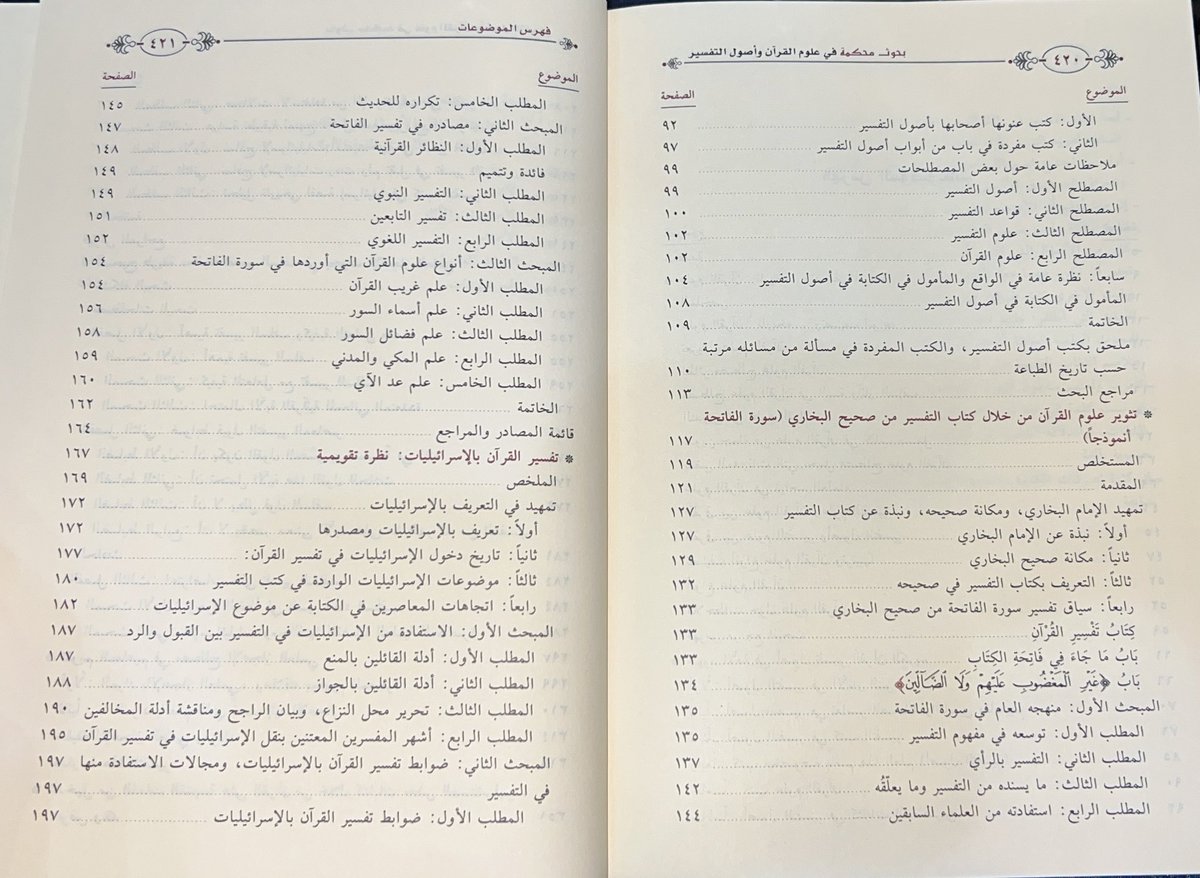 ٤٢٠
بحوث محكمة في علوم القرآن وأصول التفسير
الموضوع الصفحة
الأول: كتب عنونها أصحابها بأصول التفسير ٩٢
الثاني: كتب مفردة في باب من أبواب أصول التفسير ٩٧
ملاحظات عامة حول بعض المصطلحات ٩٩
المصطلح الأول: أصول التفسير ٩٩
المصطلح الثاني: قواعد التفسير ١٠٠
المصطلح الثالث: علوم التفسير ١٠٢
المصطلح الرابع: علوم القرآن ١٠٢
سابعاً: نظرة عامة في الواقع والمأمول في الكتابة في أصول التفسير ١٠٤
المأمول في الكتابة في أصول التفسير ١٠٨
الخاتمة ١٠٩
ملحق بكتب أصول التفسير، والكتب المفردة في مسألة من مسائله مرتبة
حسب تاريخ الطباعة ١١٠
مراجع البحث ١١٣
* تثوير علوم القرآن من خلال كتاب التفسير من صحيح البخاري (سورة الفاتحة
أنموذجاً) ١١٧
المستخلص ١١٩
المقدمة ١٢١
تمهيد الإمام البخاري، ومكانة صحيحه، ونبذة عن كتاب التفسير ١٢٧
أولاً: نبذة عن الإمام البخاري ١٢٧
ثانياً: مكانة صحيح البخاري ١٢٩
ثالثاً: التعريف بكتاب التفسير في صحيحه ١٣٢
رابعاً: سياق تفسير سورة الفاتحة من صحيح البخاري ١٣٣
كِتَابُ تَفْسِيرِ القُرْآنِ ١٣٣
بَابُ مَا جَاءَ فِي فَاتِحَةِ الكِتَابِ ١٣٣
بَابُ ﴿غَيْرِ الْمَغْضُوبِ عَلَيْهِمْ وَلَا الضَّالِّينَ﴾ ١٣٤
المبحث الأول: منهجه العام في سورة الفاتحة ١٣٥
المطلب الأول: توسعه في مفهوم التفسير ١٣٥
المطلب الثاني: التفسير بالرأي ١٣٧
المطلب الثالث: ما يسنده من التفسير وما يعلّقُه ١٤٢
المطلب الرابع: استفادته من العلماء السابقين ١٤٤
فهرس الموضوعات
٤٢١
الموضوع الصفحة
المطلب الخامس: تكراره للحديث ١٤٥
المبحث الثاني: مصادره في تفسير الفاتحة ١٤٧
المطلب الأول: النظائر القرآنية ١٤٨
فائدة وتتميم ١٤٩
المطلب الثاني: التفسير النبوي ١٤٩
المطلب الثالث: تفسير التابعين ١٥١
المطلب الرابع: التفسير اللغوي ١٥٢
المبحث الثالث: أنواع علوم القرآن التي أوردها في سورة الفاتحة ١٥٤
المطلب الأول: علم غريب القرآن ١٥٤
المطلب الثاني: علم أسماء السور ١٥٦
المطلب الثالث: علم فضائل السور ١٥٨
المطلب الرابع: علم المكي والمدني ١٥٩
المطلب الخامس: علم عد الآي ١٦٠
الخاتمة ١٦٢
قائمة المصادر والمراجع ١٦٤
* تفسير القرآن بالإسرائيليات: نظرة تقويمية ١٦٧
الملخص ١٦٩
تمهيد في التعريف بالإسرائيليات ١٧٢
أولاً: تعريف بالإسرائيليات ومصدرها ١٧٢
ثانياً: تاريخ دخول الإسرائيليات في تفسير القرآن: ١٧٧
ثالثاً: موضوعات الإسرائيليات الواردة في كتب التفسير ١٨٠
رابعاً: اتجاهات المعاصرين في الكتابة عن موضوع الإسرائيليات ١٨٢
المبحث الأول: الاستفادة من الإسرائيليات في التفسير بين القبول والرد ١٨٧
المطلب الأول: أدلة القائلين بالمنع ١٨٧
المطلب الثاني: أدلة القائلين بالجواز ١٨٨
المطلب الثالث: تحرير محل النزاع، وبيان الراجح ومناقشة أدلة المخالفين ١٩٠
المطلب الرابع: أشهر المفسرين المعتنين بنقل الإسرائيليات في تفسير القرآن ١٩٥
المبحث الثاني: ضوابط تفسير القرآن بالإسرائيليات، ومجالات الاستفادة منها ١٩٧
في التفسير ١٩٧
المطلب الأول: ضوابط تفسير القرآن بالإسرائيليات ١٩٧